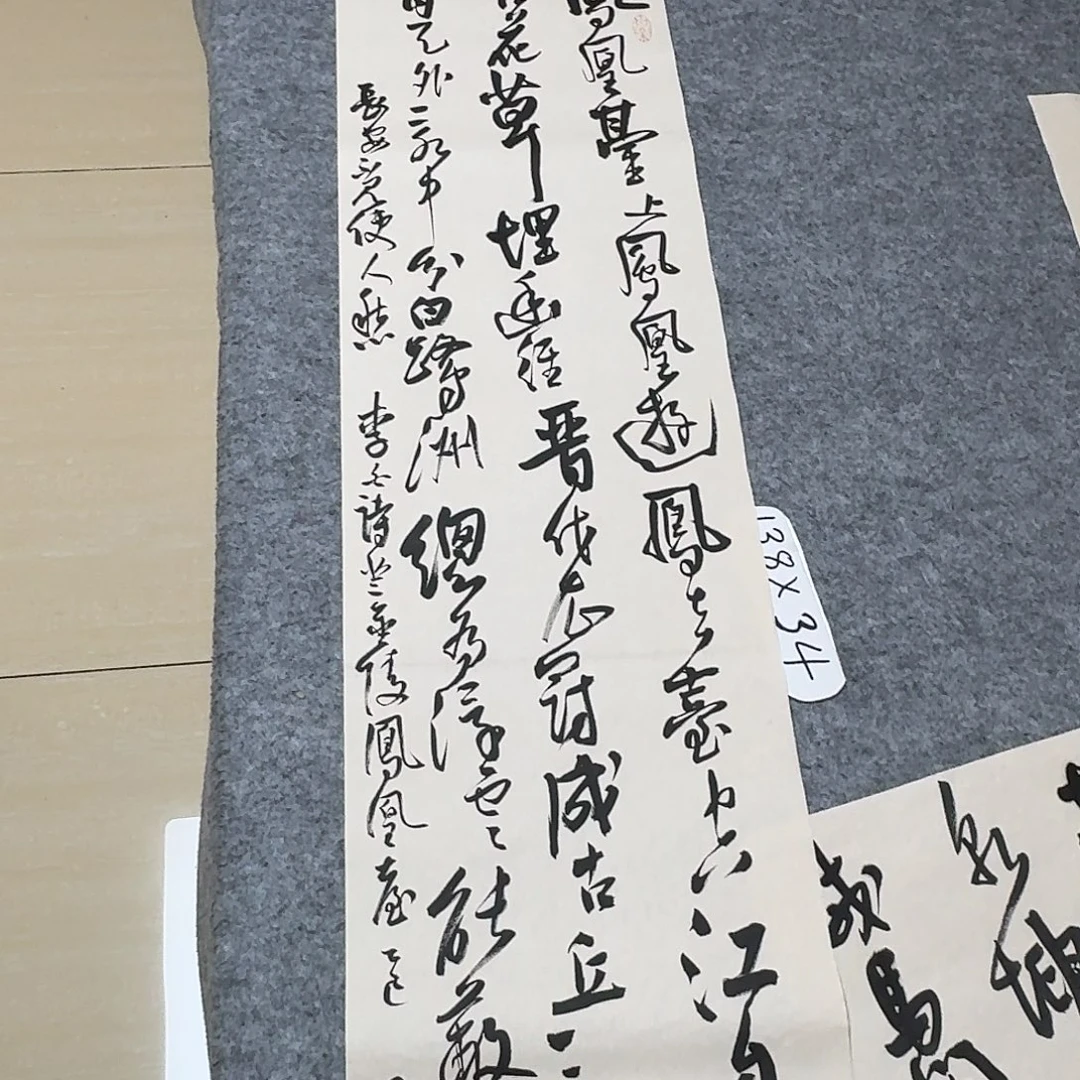 鳳凰臺上鳳凰遊鳳去臺空江自
宮花草埋幽徑晉代衣冠成古丘三
青天外二水中分白鷺洲總為浮雲能蔽
長安不見使人愁 李白詩登金陵鳳凰臺 乙巳
138×34
馬